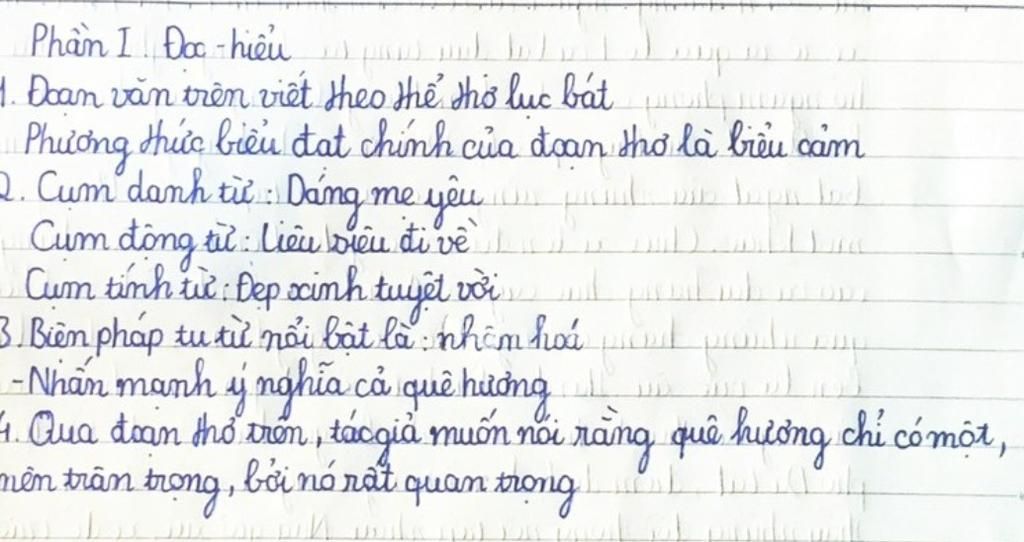 Phần I. Đọc - hiểu
1. Đoạn văn trên viết theo thể thơ lục bát
Phương thức biểu đạt chính của đoạn thơ là biểu cảm
2. Cụm danh từ: Dáng mẹ yêu
Cụm động từ: liêu xiêu đi về
Cụm tính từ: Đẹp xinh tuyệt vời
3 Biện pháp tu từ nổi bật là: nhân hoá
- Nhấn mạnh ý nghĩa cả quê hương
4. Qua đoạn thơ trên, tác giả muốn nói rằng quê hương chỉ có một,
nên trân trọng, bởi nó rất quan trọng